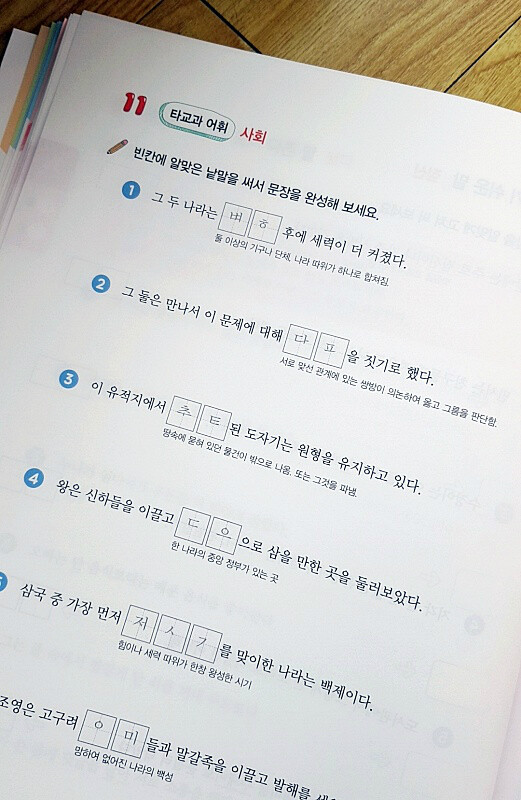 11 타교과 어휘 사회
빈칸에 알맞은 낱말을 써서 문장을 완성해 보세요.
1 그 두 나라는 벼 ㅎ 후에 세력이 더 커졌다.
둘 이상의 기구나 단체, 나라 따위가 하나로 합쳐짐.
2 그 둘은 만나서 이 문제에 대해 다 ㅍ 을 짓기로 했다.
서로 맞선 관계에 있는 쌍방이 의논하여 옳고 그름을 판단함.
3 이 유적지에서 추 ㅌ 된 도자기는 원형을 유지하고 있다.
땅속에 묻혀 있던 물건이 밖으로 나옴. 또는 그것을 파냄.
4 왕은 신하들을 이끌고 ㄷ 으 으로 삼을 만한 곳을 둘러보았다.
한 나라의 중앙 정부가 있는 곳
삼국 중 가장 먼저 저 ㅅ ㄱ 를 맞이한 나라는 백제이다.
힘이나 세력 따위가 한창 왕성한 시기
조영은 고구려 ㅇ 미 들과 말갈족을 이끌고 발해를
망하여 없어진 나라의 백성